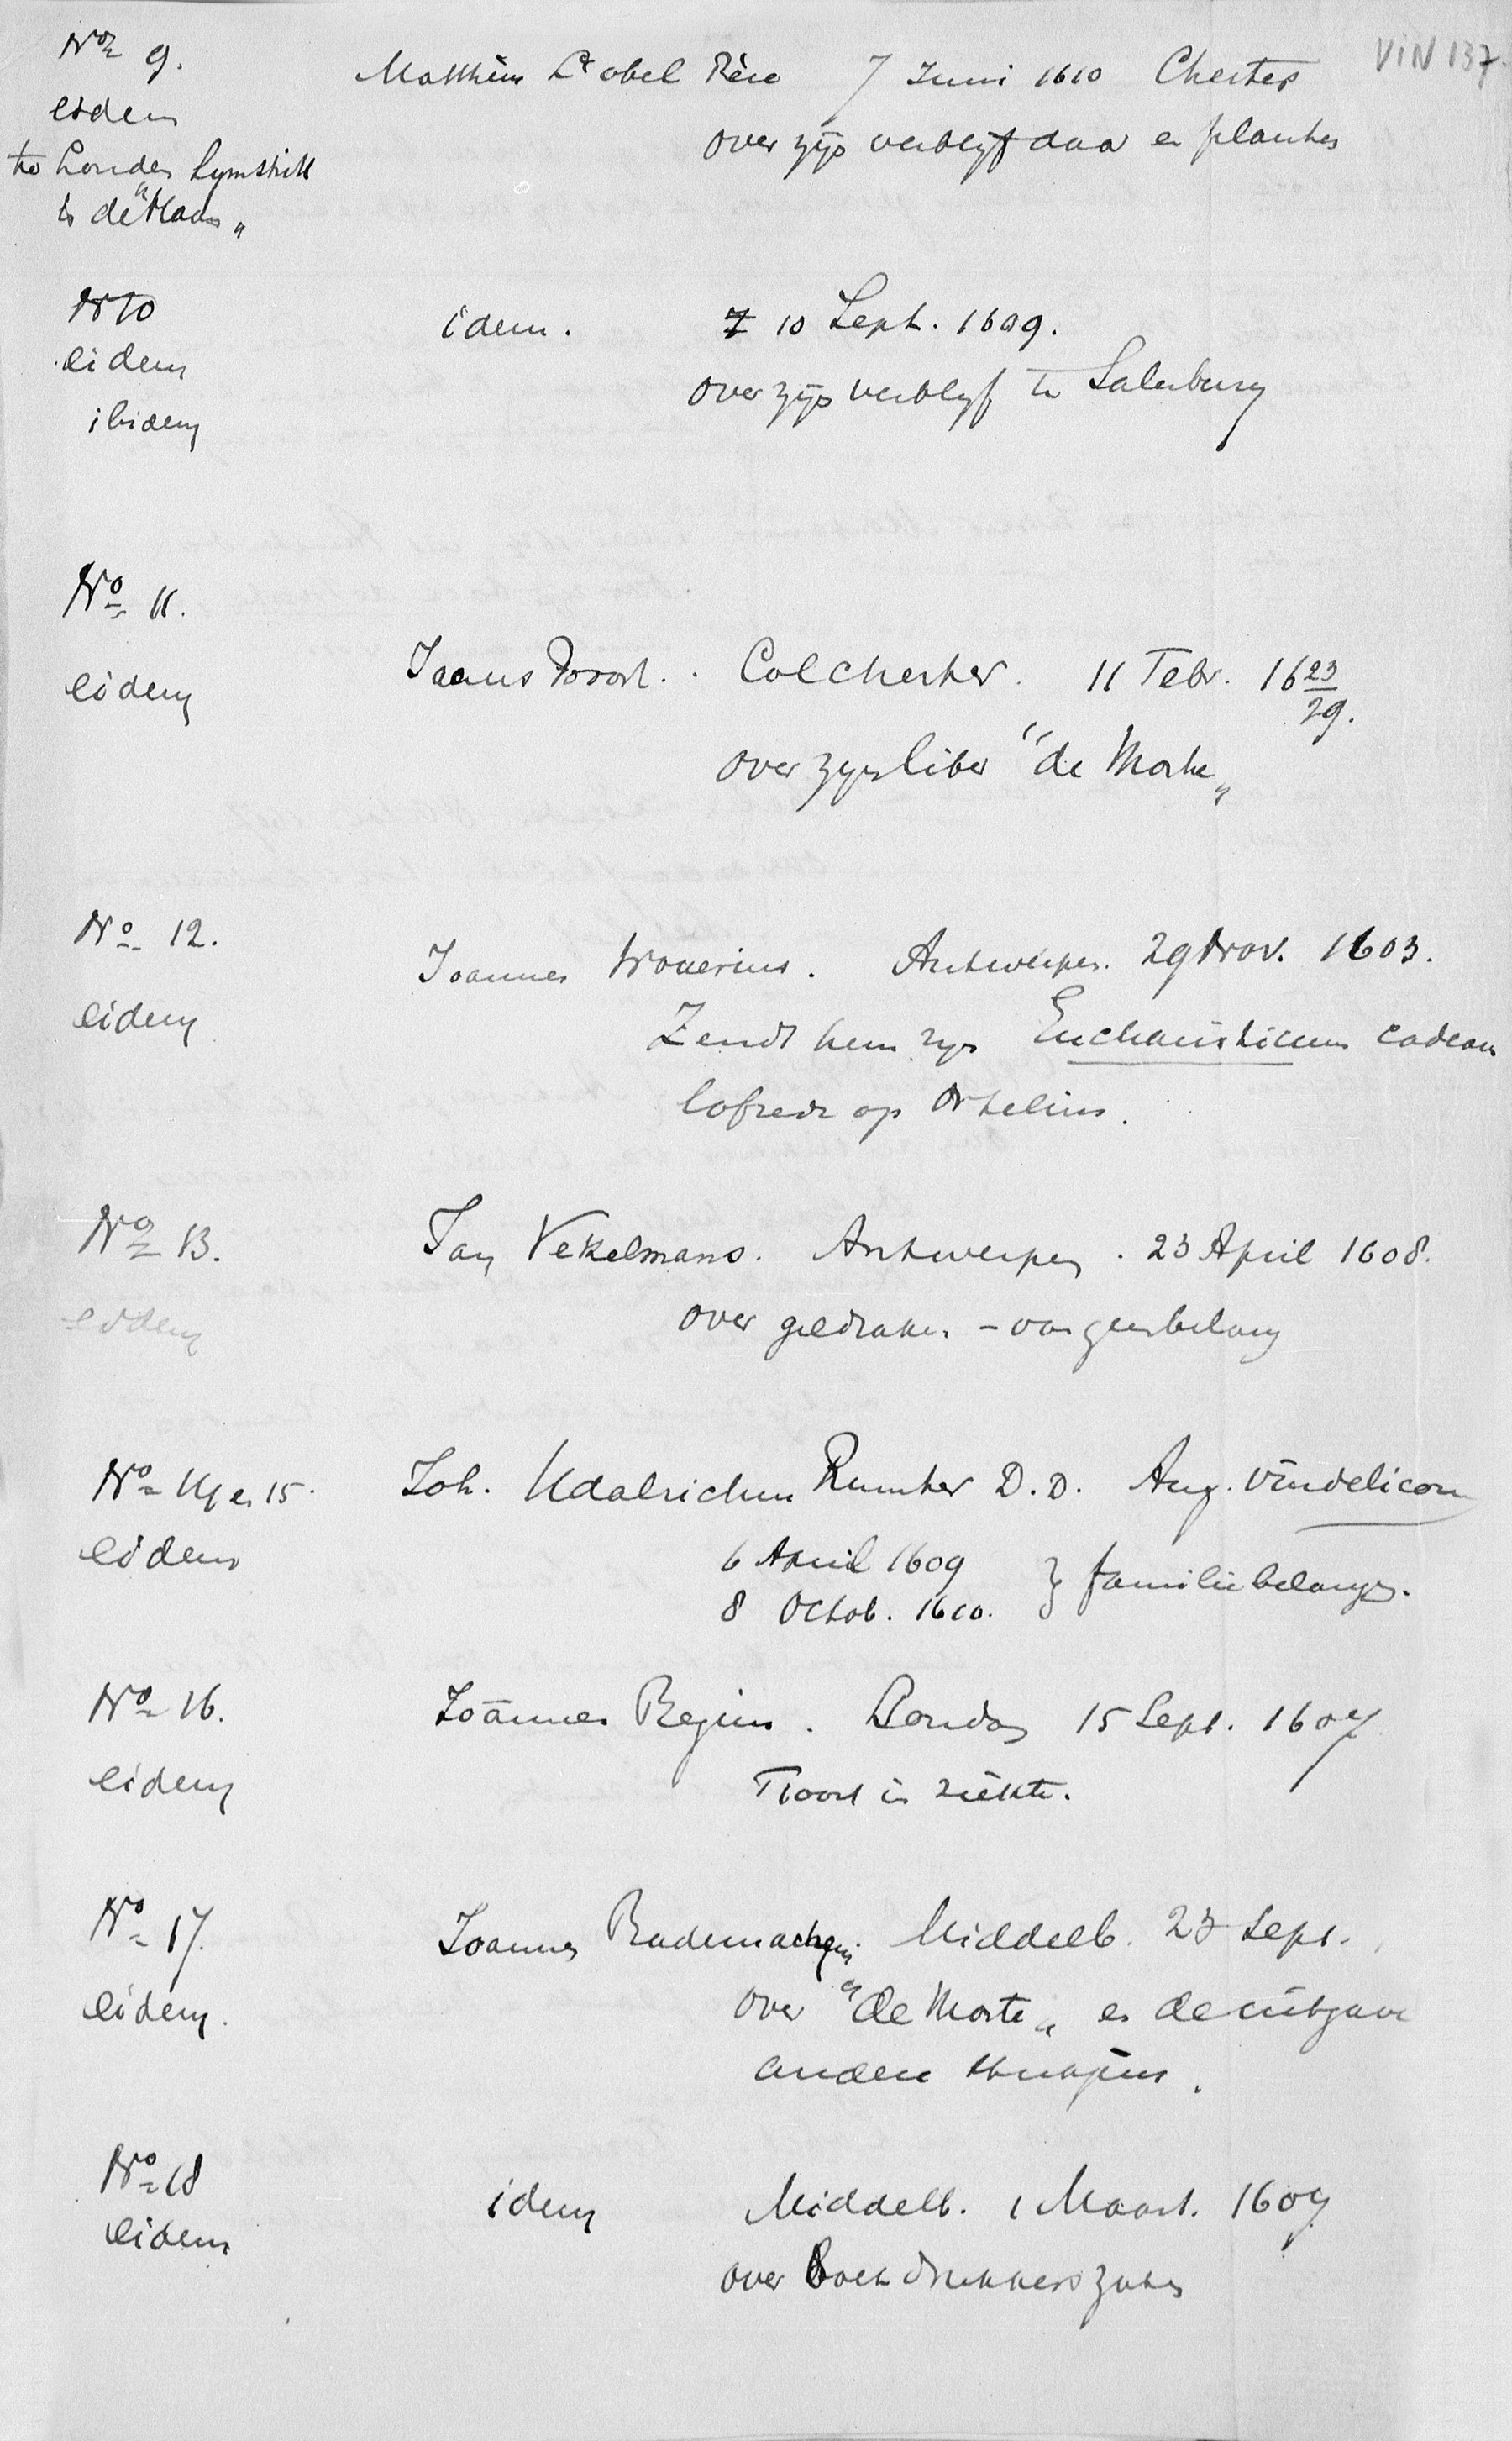 ViN 137.
No 9. Matthieu L'obel Père 7 Juni 1610 Chester
eidem over zijn verblijf daar en planten
te Londen Lymstritt
in de "Maan"
No 10 idem. 10 Sept. 1609.
eidem over zijn verblyf te Salerburg
ibidem
No 11. Colchester. 11 Febr. 16 23/29.
eidem over zyn liber "de Morte"
No 12. Joannes Woverius. Antwerpen. 29 Nov. 1603.
eidem Zendt hem zyn Eucharisticum cadeau
lofrede op Ortelius.
No 13. Jan Vekelmans. Antwerpen. 23 April 1608.
eidem over geldzaken - van geen belang
No 14 en 15. Joh. Udalrichus Rumler D.D. Aug. Vindelicorum
eidem 6 April 1609 } familiebelangen.
8 Octob. 1610.
No 16. Joannes Regius. Londen 15 Sept. 1607
eidem Troost in ziekte.
No 17. Joannes Rademacher. Middelb. 23 Sept.
eidem. over "de Morte" en de uitgave
andere stukjens.
No 18 idem Middelb. 1 Maart. 1607
eidem over Boekdrukkers zaken